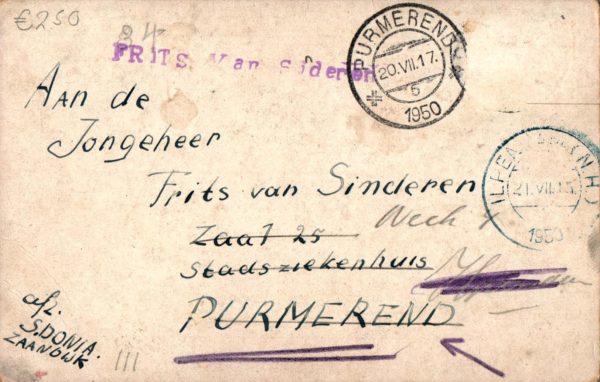 €250
84
FRITS van Sinderen
PURMEREND
20.VII.17.
5
1950
Aan de
Jongeheer
Frits van Sinderen
Zaal 25
Stadsziekenhuis
PURMEREND
21.VII.1
1950
afz.
S. DONIA.
ZAANDWK
III